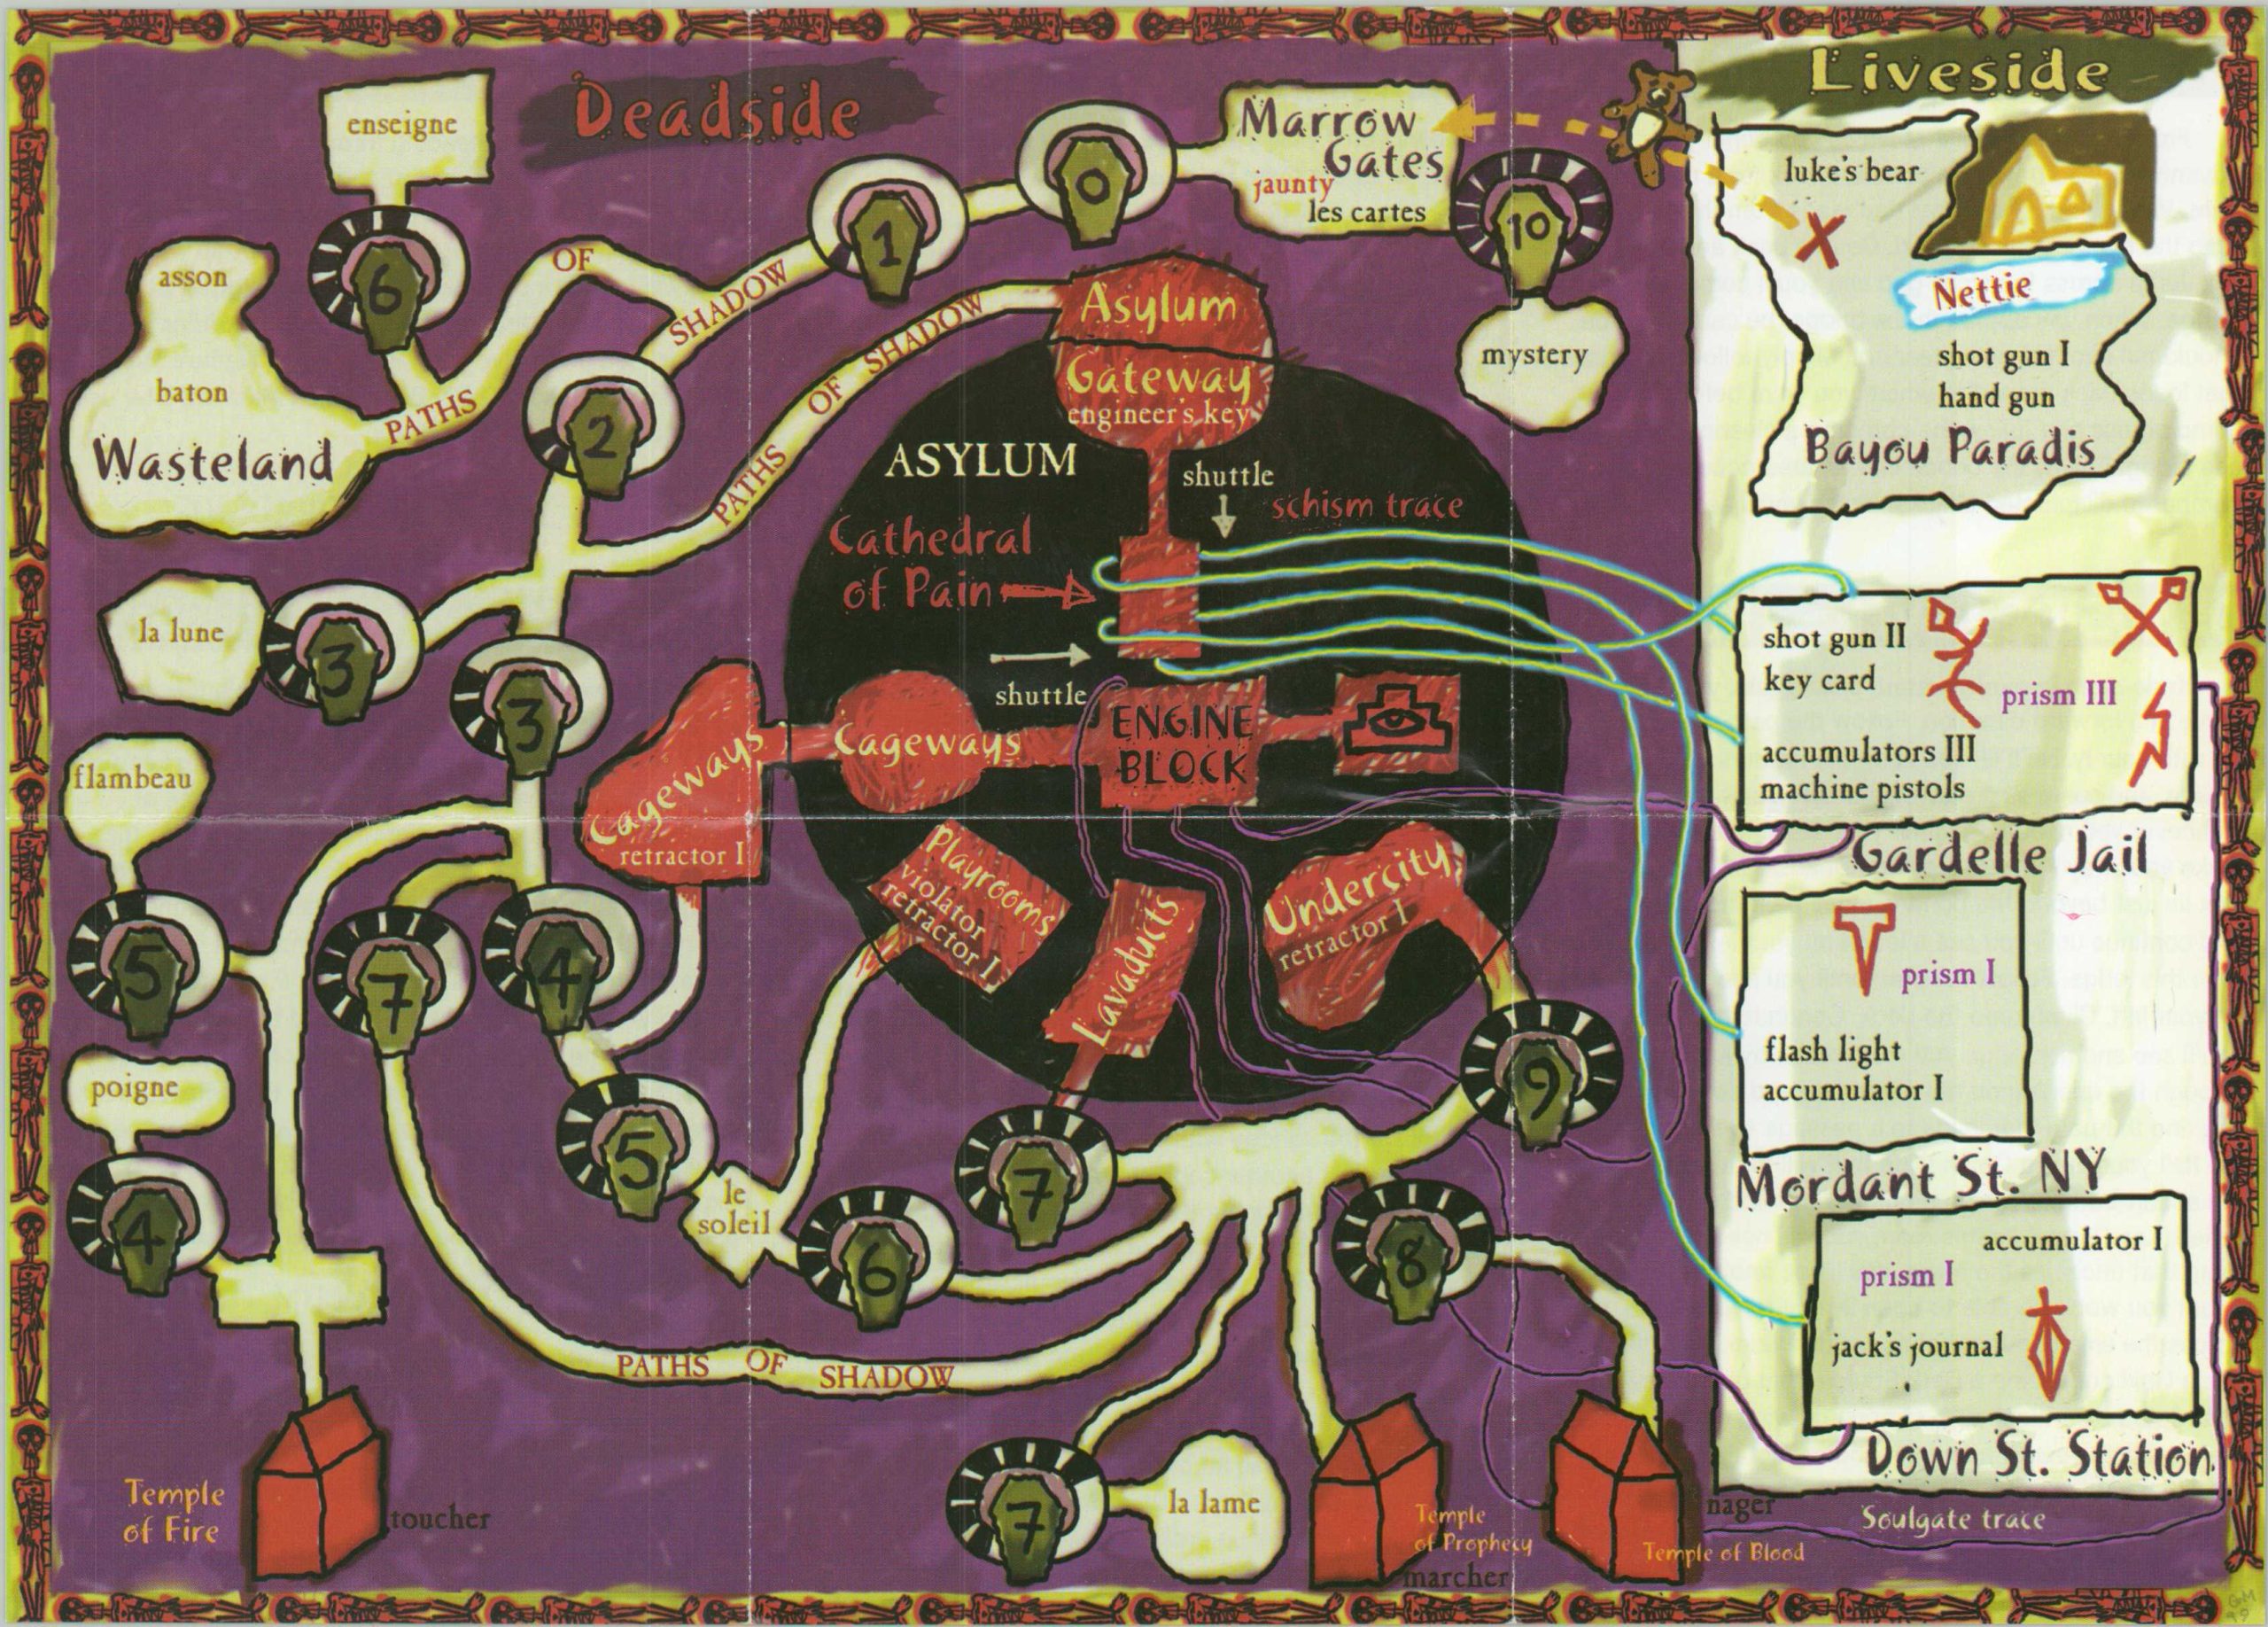 Deadside
Liveside
enseigne
6
asson
baton
Wasteland
PATHS OF SHADOW
1
0
Marrow
Gates
jaunty
les cartes
10
mystery
2
PATHS OF SHADOW
Asylum
Gateway
engineer's key
ASYLUM
shuttle
schism trace
Cathedral
of Pain
shuttle
la lune
3
3
Cageways
retractor I
Cageways
ENGINE
BLOCK
flambeau
5
7
4
Playrooms
violator
retractor I
Lavaducts
Undercity
retractor I
poigne
4
5
le
soleil
6
7
9
8
PATHS OF SHADOW
Temple
of Fire
toucher
7
la lame
Temple
of Prophecy
marcher
nager
Temple of Blood
luke's bear
X
Nettie
shot gun I
hand gun
Bayou Paradis
shot gun II
key card
prism III
accumulators III
machine pistols
Gardelle Jail
prism I
flash light
accumulator I
Mordant St. NY
accumulator I
prism I
jack's journal
Down St. Station
Soulgate trace